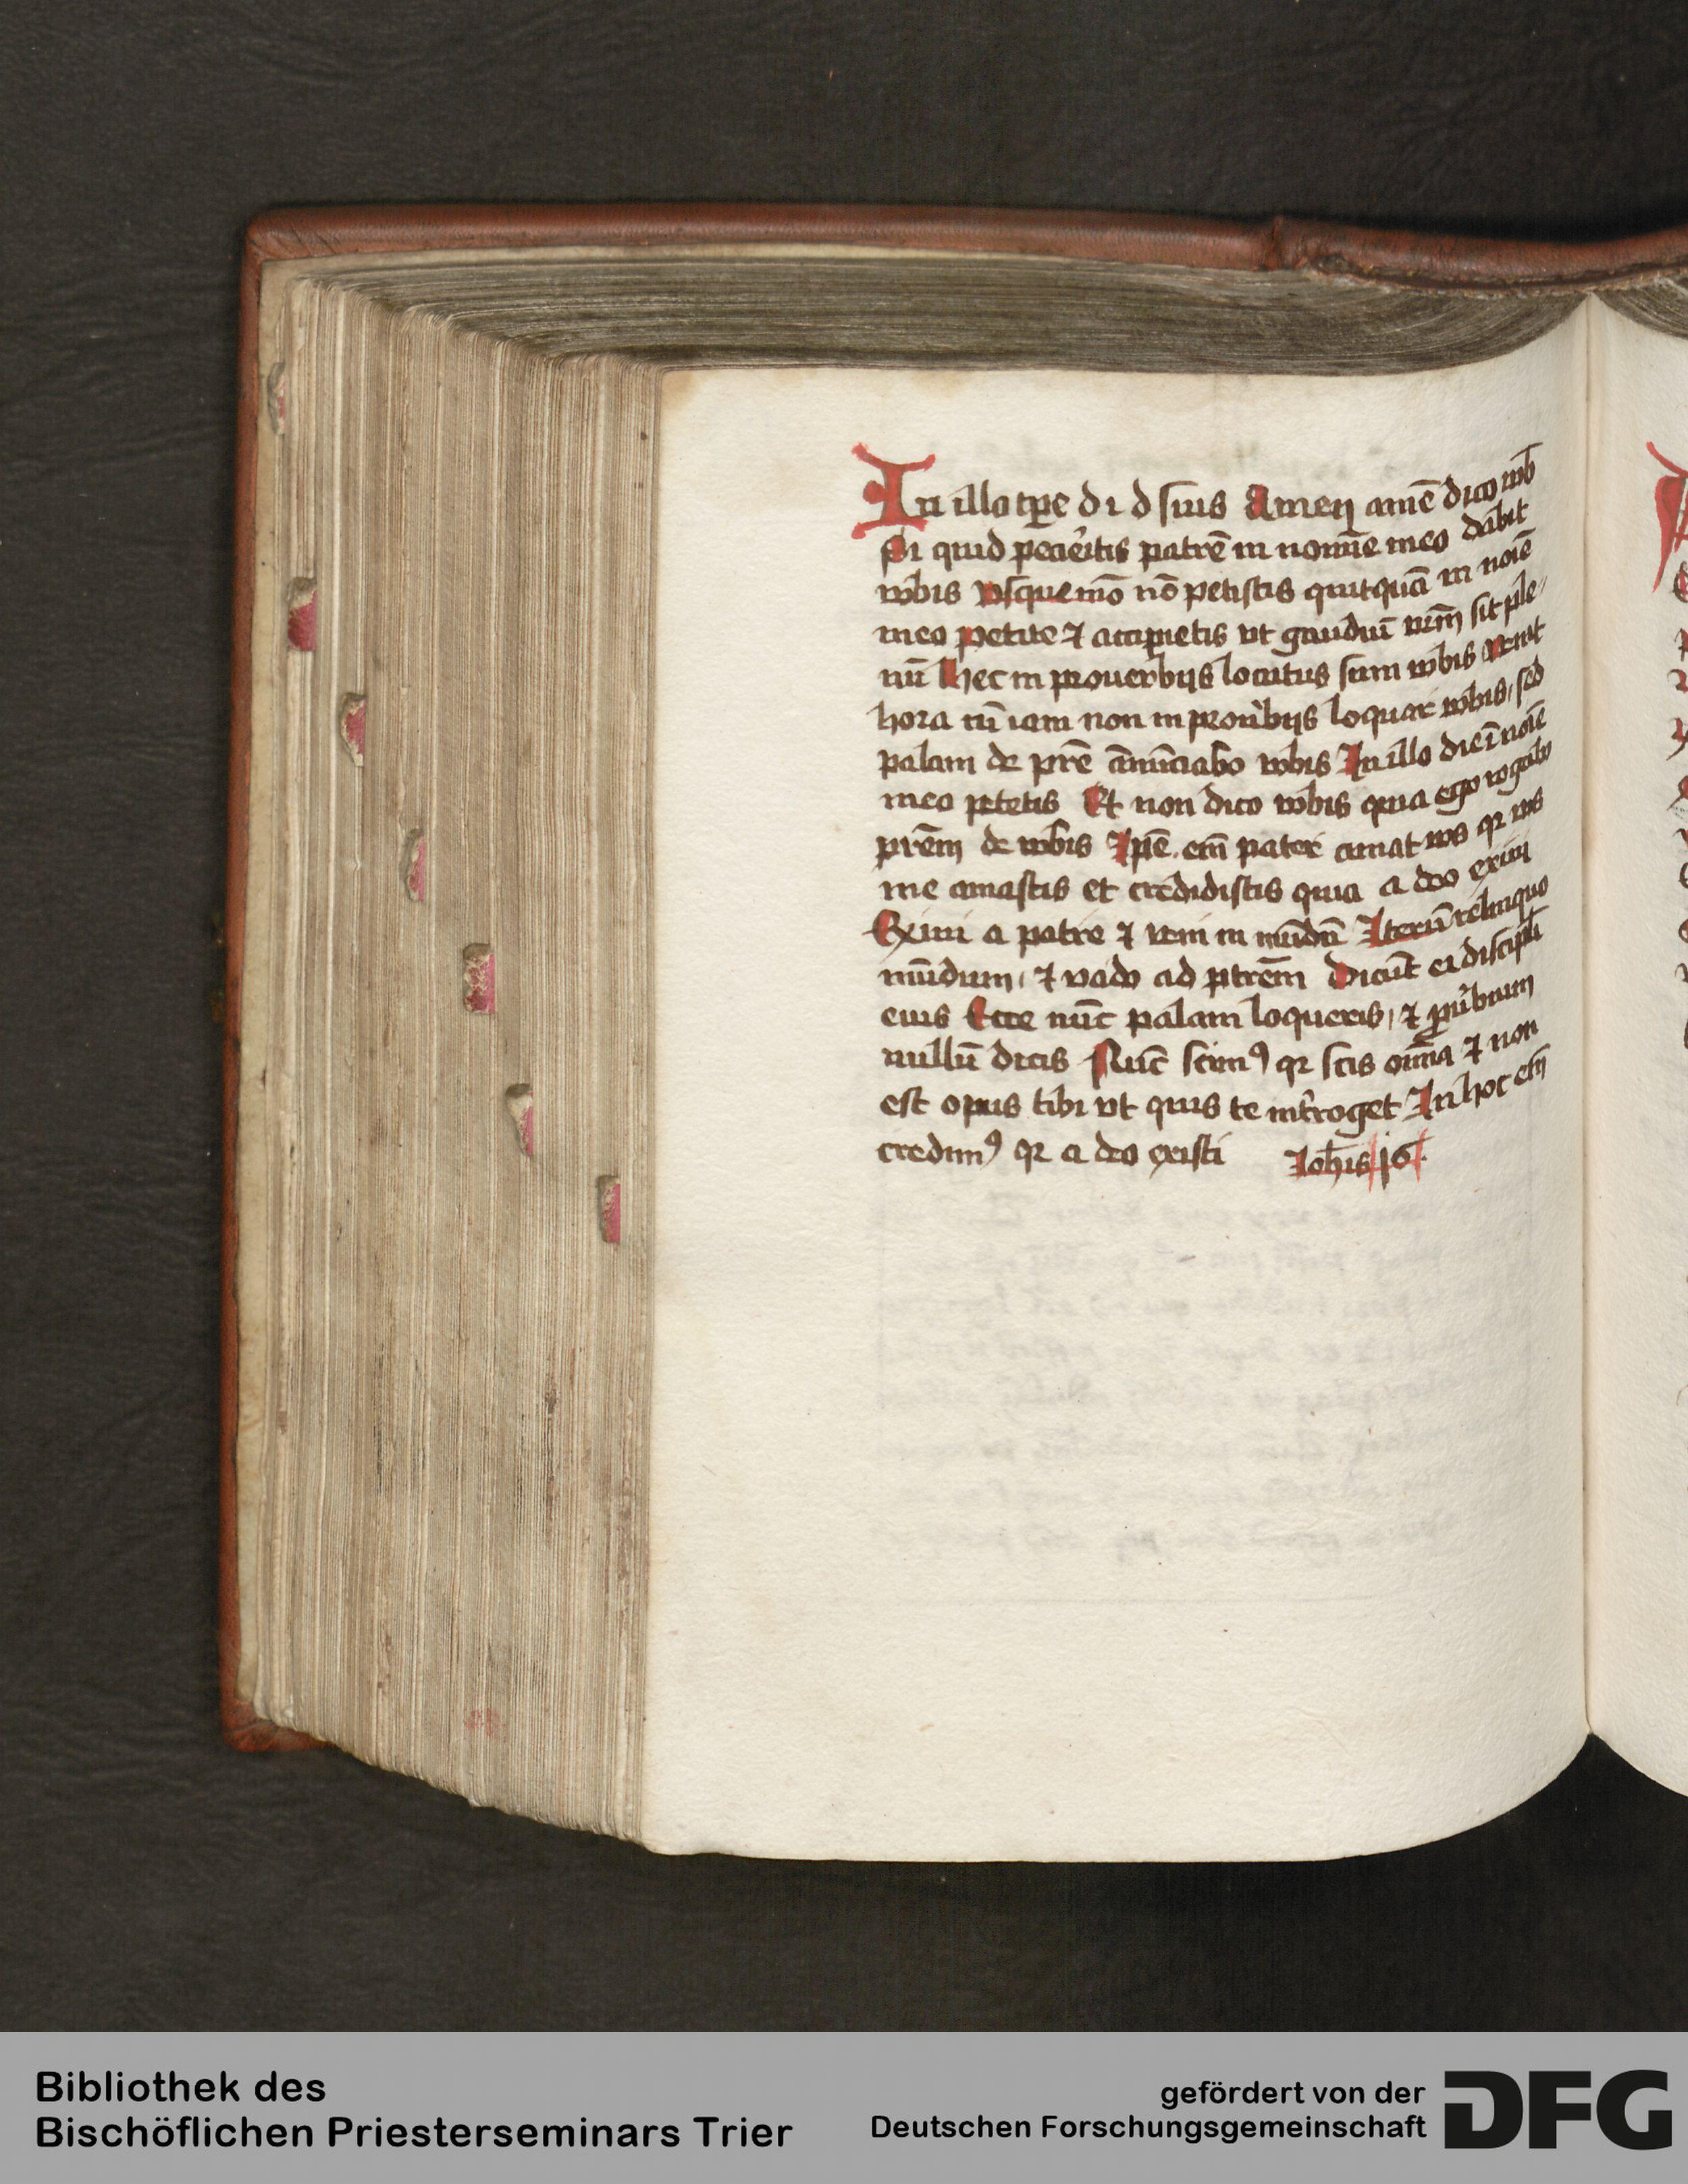 In illo tꝑe d i d suis Amen amē dico vob̄
Si quid pecie͛itis patrē in nomīe meo dabit
vobis vsquemō nō petistis quitquā in noīe
meo petite ⁊ accipietis vt gaudiū vr̄m sit ple
nū hec in prouerbijs locutus sum vobis venit
hora cū iam non in prou͛bijs loquar vobis / sed
palam de pr̄e ānūciabo vobis In illo die ī noīe
meo petetis Et non dico vobis quia ego rogabo
pr̄em de vobis Ip̄e em̄ pater amat vos qꝛ vos
me amastis et credidistis quia a deo exiui
Exiui a patre ⁊ veni in mūdū Iterū relinquo
mūdum / ⁊ vado ad ptrēm Dicūt ei discipl̄i
eius Ecce nūc palam loqueris / ⁊ ꝓu͛bium
nullū dicis Nūc scimꝰ qꝛ scis oīa ⁊ non
est opus tibi vt quis te int͛roget In hoc em̄
credimꝰ qꝛ a deo existi Ioh̄is 16
Bibliothek des
Bischöflichen Priesterseminars Trier
gefördert von der
Deutschen Forschungsgemeinschaft
DFG